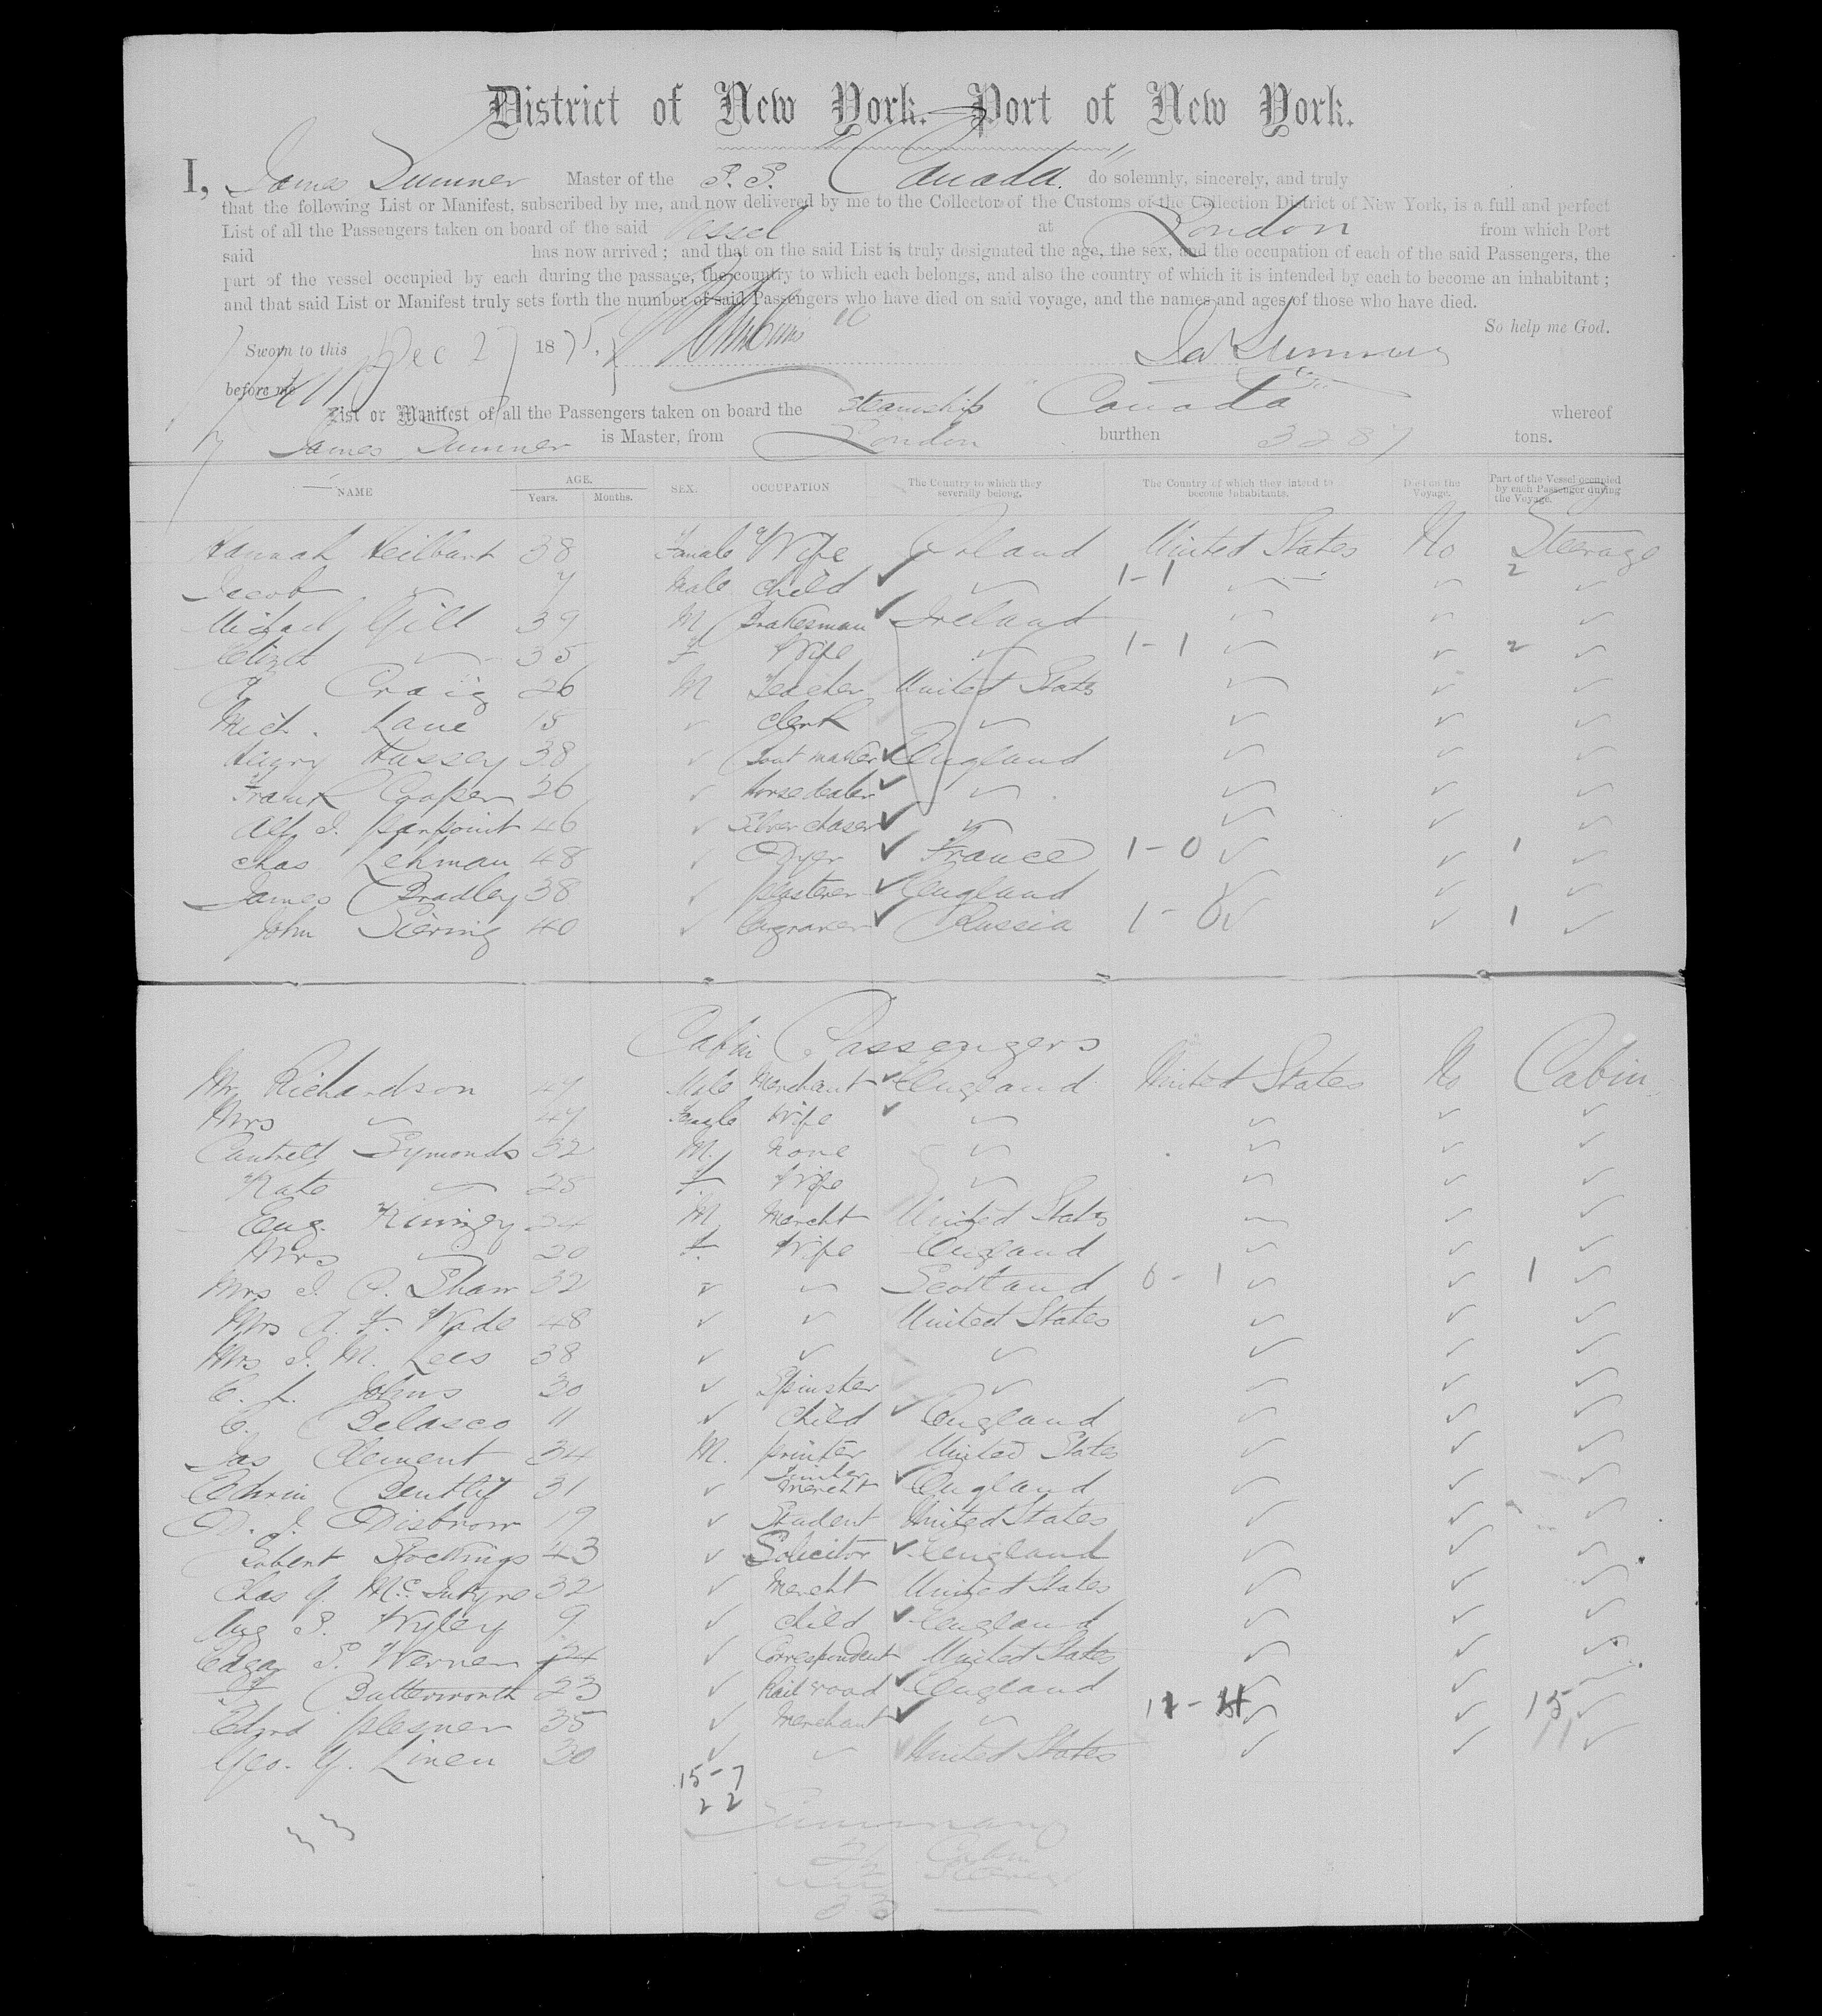 District of New York. Port of New York.
I, James Sumner Master of the S.S. "Canada" do solemnly, sincerely, and truly
that the following List or Manifest, subscribed by me, and now delivered by me to the Collector of the Customs of the Collection District of New York, is a full and perfect
List of all the Passengers taken on board of the said Vessel at London from which Port
said has now arrived; and that on the said List is truly designated the age, the sex, and the occupation of each of the said Passengers, the
part of the vessel occupied by each during the passage, the country to which each belongs, and also the country of which it is intended by each to become an inhabitant;
and that said List or Manifest truly sets forth the number of said Passengers who have died on said voyage, and the names and ages of those who have died.
So help me God.
Sworn to this Dec 27 1875. Jas Sumner
before me
List or Manifest of all the Passengers taken on board the Steamship "Canada" whereof
James Sumner is Master, from London burthen 3287 tons.
NAME AGE. Years. Months. SEX. OCCUPATION The Country to which they severally belong. The Country of which they intend to become Inhabitants. Died on the Voyage. Part of the Vessel occupied by each Passenger during the Voyage.
Hannah Heilbunt 38 Female Wife Poland United States No Steerage
Jacob ✓ 7 Male Child ✓ ✓ 1-1 ✓ ✓ 2 ✓
Michael Gill 39 M Brakesman ✓ Ireland ✓ ✓ ✓
Elizth ✓ 35 F Wife ✓ 1-1 ✓ ✓ 2 ✓
Craig 26 M Teacher United States ✓ ✓ ✓
Mich. Lane 15 ✓ Clerk ✓ ✓ ✓ ✓
Henry Hussey 38 ✓ Boot maker ✓ England ✓ ✓ ✓
Frank Cooper 26 ✓ Horse dealer ✓ ✓ ✓ ✓ ✓
Alf. J. Pearpoint 46 ✓ Silver chaser ✓ ✓ ✓ ✓ ✓
Chas Lehman 48 ✓ Dyer ✓ France 1-0 ✓ ✓ 1 ✓
James Bradley 38 ✓ Plasterer ✓ England ✓ ✓ ✓
John Siering 40 ✓ Engraver ✓ Russia 1-0 ✓ ✓ 1 ✓
Cabin Passengers
Mr Richardson 47 Male Merchant ✓ England United States No Cabin
Mrs ✓ 47 Female Wife ✓ ✓ ✓ ✓ ✓
Cantrell Symonds 32 M. None ✓ ✓ ✓ ✓
Kate ✓ 28 F Wife ✓ ✓ ✓ ✓
Eug. 24 M Mercht United States ✓ ✓ ✓
Mrs ✓ 20 F. Wife England ✓ ✓ ✓
Mrs J. C. Shaw 32 ✓ ✓ Scotland 0-1 ✓ ✓ 1 ✓
Mrs A. F. Wade 48 ✓ ✓ United States ✓ ✓ ✓
Mrs J. M. Lees 38 ✓ ✓ ✓ ✓ ✓ ✓
C. L. Johns 30 ✓ Spinster ✓ ✓ ✓ ✓
C. Belasco 11 ✓ Child ✓ England ✓ ✓ ✓
Jas Clement 34 M. Printer United States ✓ ✓ ✓
Edwin Bently 31 ✓ Timber Mercht ✓ England ✓ ✓ ✓
D. J. Disbrow 19 ✓ Student United States ✓ ✓ ✓
Robert Stockings 43 ✓ Solicitor ✓ England ✓ ✓ ✓
Chas G. McIntyre 32 ✓ Mercht United States ✓ ✓ ✓
Aug S. Wyley 9 ✓ Child ✓ England ✓ ✓ ✓
Edgar S. Werner 24 ✓ Correspondent United States ✓ ✓ ✓
Butterworth 23 ✓ Rail road ✓ England ✓ ✓ ✓
Edwd Plesner 35 ✓ Merchant ✓ ✓ ✓ ✓ 15 ✓
Geo. G. Linen 30 ✓ ✓ United States ✓ ✓ ✓
15-7
22
Summary
21 Cabin
12 Steerage
33